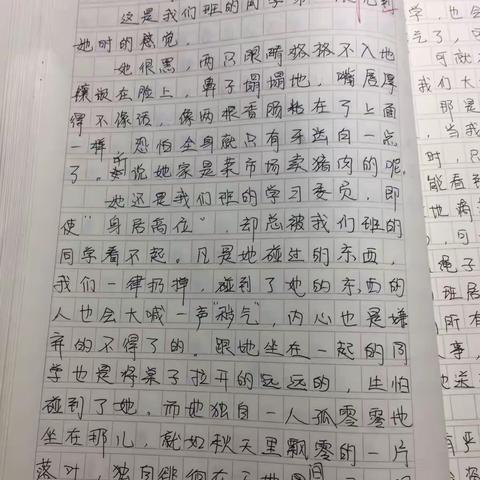 这是我们班的同学第一
她时的感觉。
她很黑，两只眼睛狠狠不入地
镶嵌在脸上，鼻子塌塌地，嘴唇厚
得不像话，像两根香肠粘在了上面
一样，恐怕全身就只有牙齿白一点
了。听说她家是菜市场卖猪肉的呢。
她还是我们班的学习委员，即
使“身居高位”，却总被我们班的
同学看不起。凡是她碰过的东西，
我们一律扔掉，碰到了她的东西的
人也会大喊一声“秽气”，内心也是嫌
弃的不得了的。跟她坐在一起的同
学也是将桌子拉开的远远的，生怕
碰到了她。而她独自一人孤零零地
坐在那儿，就如秋天里飘零的一片
落叶，独自徘徊在了
学，也会
气了，
可就
我们大
那是
，当我
时，只
能看到
地
，可一
绳子
班居
所有
事，